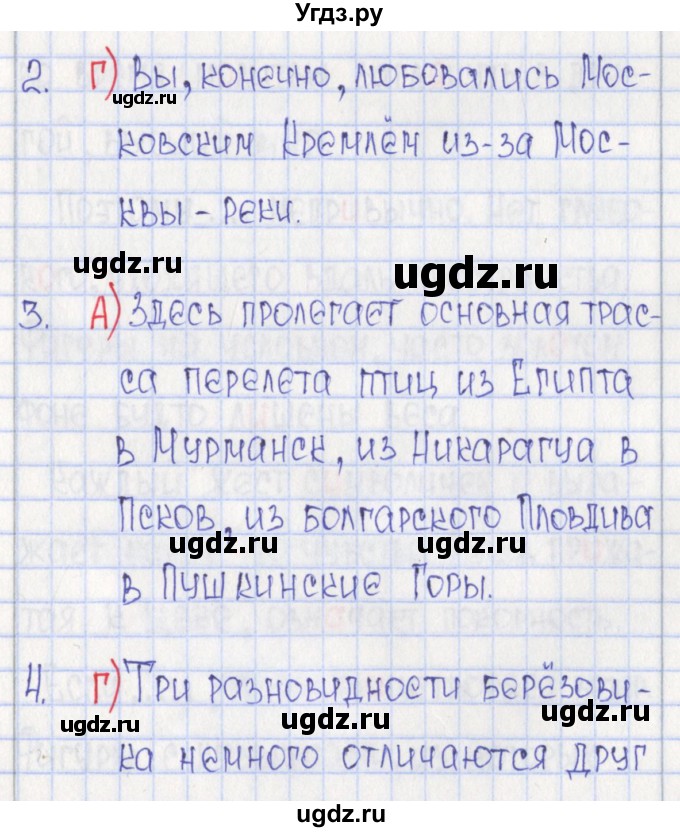 Угдз.ру
2. Г) Вы, конечно, любовались Мос-
ugdz.ru
ковским Кремлём из-за Мос-
квы-реки.
ugdz.ru
ugdz.ru
3. А) Здесь пролегает основная трас-
ugdz.ru
са перелёта птиц из Египта
в Мурманск, из Никарагуа в
Псков, из болгарского Пловдива
ugdz.ru ugdz.ru
в Пушкинские Горы.
4. Г) Три разновидности берёзови-
ugdz.ru ugdz.ru
ка немного отличаются друг
ugdz.ru